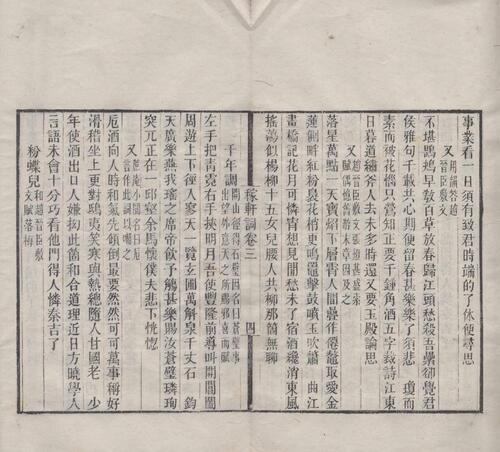 事業看一日須有致君時端的了休便尋思
又 用韻答趙晉臣敷文
不堪鶗鴂早教百草放春歸江頭愁殺吾纍卻覺君
侯雅句千載共心期便留春甚樂樂了須悲 瓊而
素而被花惱只鶯知正要千鍾角酒五字裁詩江東
日暮道繡斧人去未多時還又要玉殿論思
又 趙晉臣敷文張燈甚盛索
賦偶憶舊游末章因及之
落星萬點一天寶焰下層霄人間疊作僊鼇最愛金
蓮側畔紅粉裊花梢更鳴鼉擊鼓噴玉吹簫 曲江
畫橋記花月可憐宵想見閒愁未了宿酒纔消東風
搖蕩似楊柳十五女兒腰人共柳那箇無聊
稼軒詞卷三 四
千年調 開山徑得石壁因名曰蒼壁事
出望外意天之所賜邪喜而賦
左手把青霓右手挾明月吾使豐隆前導叫開閶闔
周遊上下徑入寥天一覽玄圃萬斛泉千丈石 鈞
天廣樂燕我瑤之席帝飲予觴甚樂賜汝蒼璧璘珣
突兀正在一邱壑余馬懷僕夫悲下恍惚
又 蔗菴小閣名曰卮
言作此詞以嘲之
卮酒向人時和氣先傾倒最要然然可可萬事稱好
滑稽坐上更對鴟夷笑寒與熱總隨人甘國老 少
年使酒出口人嫌拗此箇和合道理近日方曉學人
言語未會十分巧看他們得人憐秦吉了
粉蝶兒 和趙晉臣敷
文賦落梅